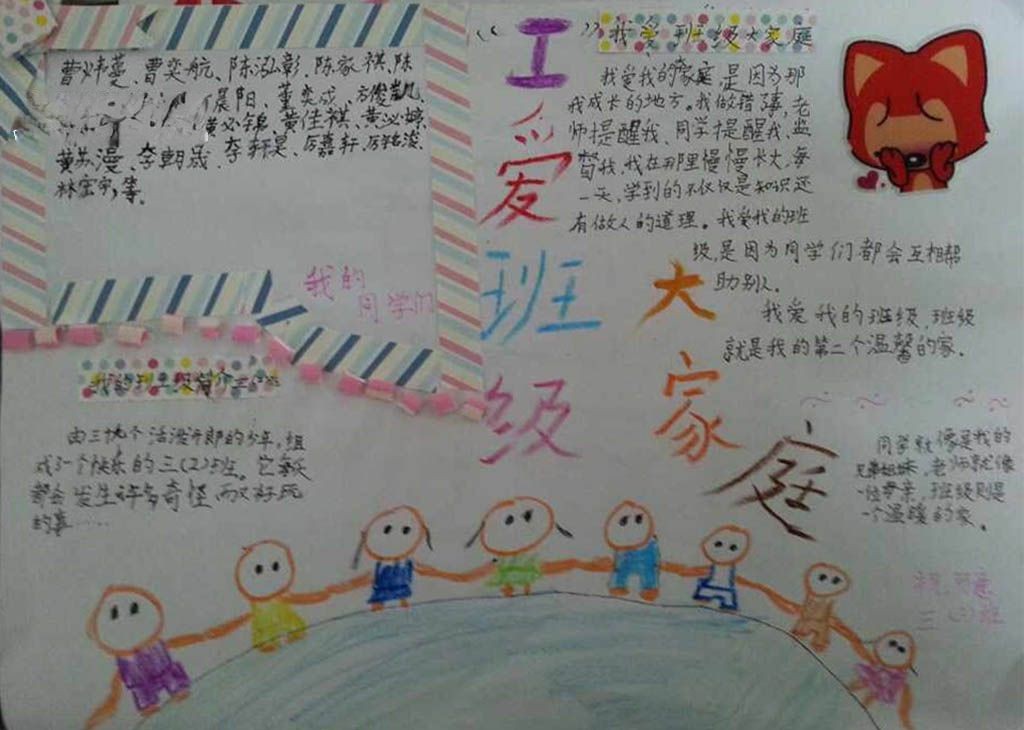 曹炜蔓、曹奕航、陈泓彰、陈家祺、陈
晨阳、董奕成、方俊凯、
黄必锦、黄佳祺、黄必
黄苏漫、李朝晟、李轩昊、厉嘉轩、厉铭浚、
林宏宇,等。
我的
同学们
“工”
爱
班
级
大
家
庭
我爱班级大家庭
我爱我的家庭是因为那
我成长的地方。我做错事,老
师提醒我、同学提醒我、监
督我,我在那里慢慢长大,每
一天,学到的不仅仅是知识还
有做人的道理。我爱我的班
级,是因为同学们都会互相帮
助别人。
我爱我的班级,班级
就是我的第二个温馨的家。
我的班级简介
由三十九个活泼开郎的少年,组
成了一个快乐的三(2)班。它每天
都会发生许多奇怪,而又好玩
的事……
同学就像是我的
兄弟姐妹,老师就像
一位母亲,班级则是
一个温暖的家。
三(2)班